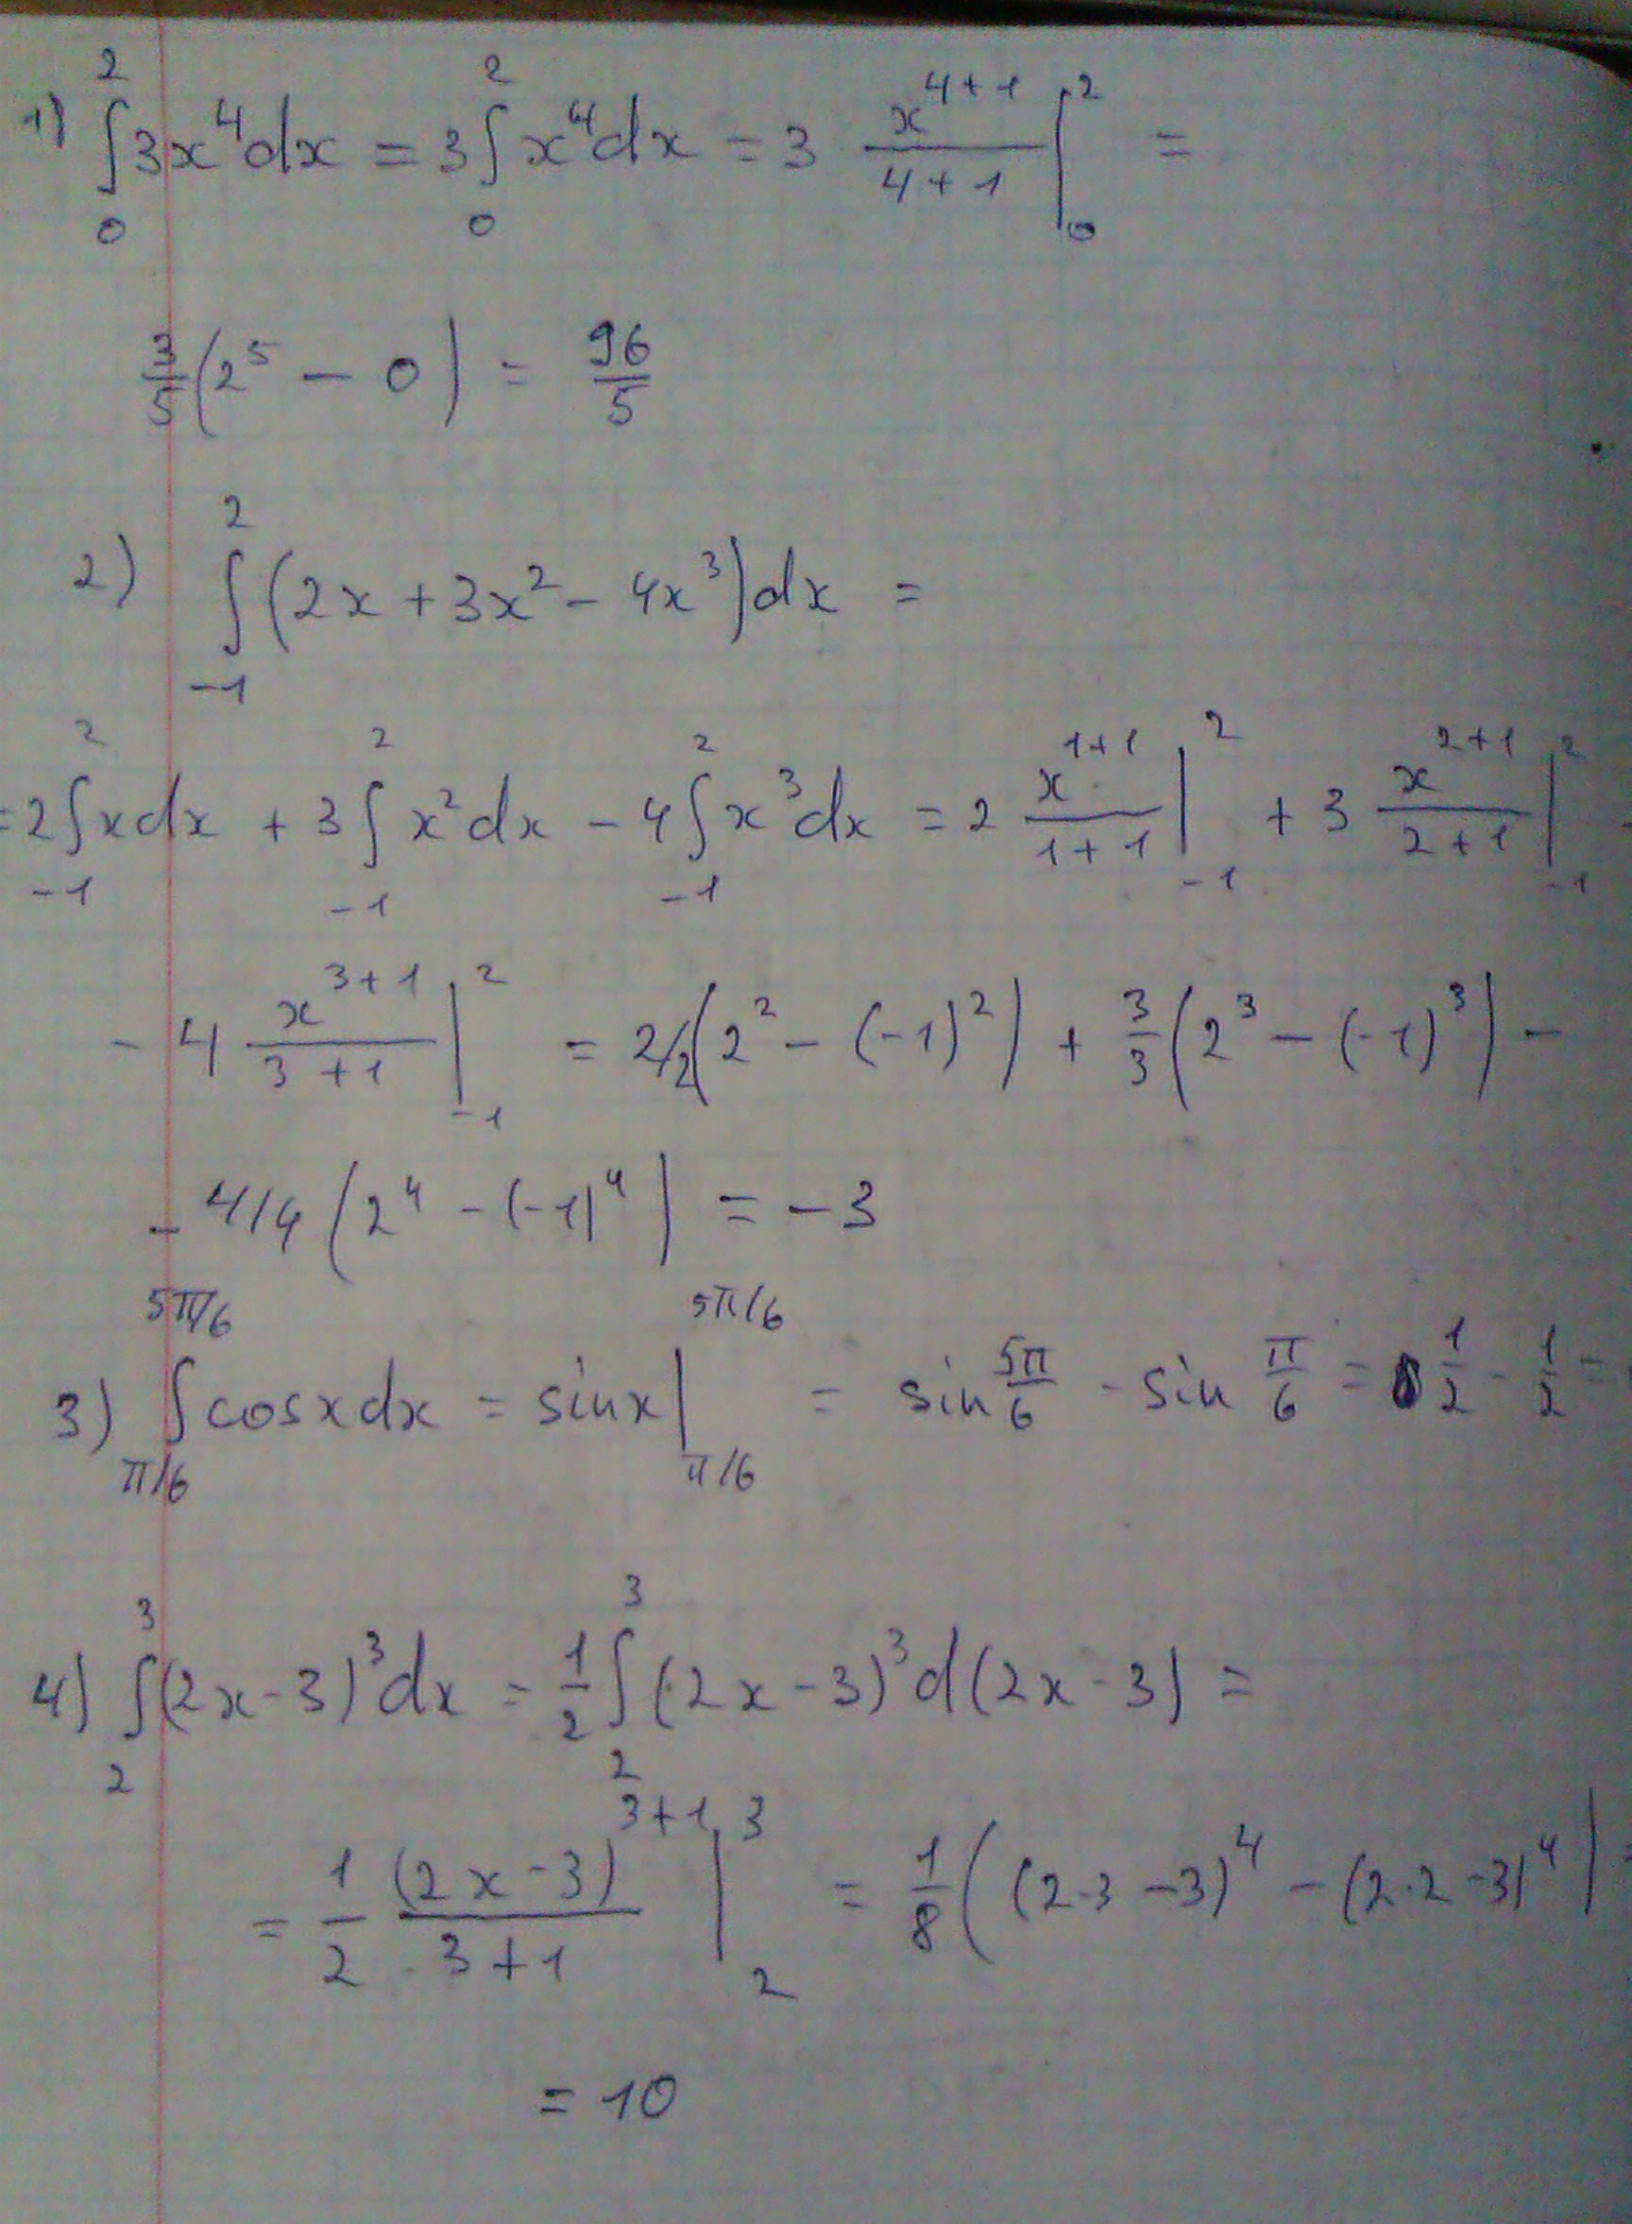 1) ∫₀² 3x⁴dx = 3∫₀² x⁴dx = 3 x⁴⁺¹/(4+1) |₀² =
3/5 (2⁵ - 0) = 96/5
2) ∫₋₁² (2x + 3x² - 4x³)dx =
= 2∫₋₁² xdx + 3∫₋₁² x²dx - 4∫₋₁² x³dx = 2 x¹⁺¹/(1+1) |₋₁² + 3 x²⁺¹/(2+1) |₋₁² -
- 4 x³⁺¹/(3+1) |₋₁² = 2/2(2² - (-1)²) + 3/3 (2³ - (-1)³) -
- 4/4 (2⁴ - (-1)⁴) = -3
3) ∫_{π/6}^{5π/6} cosxdx = sinx |_{π/6}^{5π/6} = sin 5π/6 - sin π/6 = 1/2 - 1/2 =
4) ∫₂³ (2x-3)³dx = 1/2 ∫₂³ (2x-3)³d(2x-3) =
= 1/2 (2x-3)³⁺¹/(3+1) |₂³ = 1/8 ((2·3-3)⁴ - (2·2-3)⁴) =
= 10